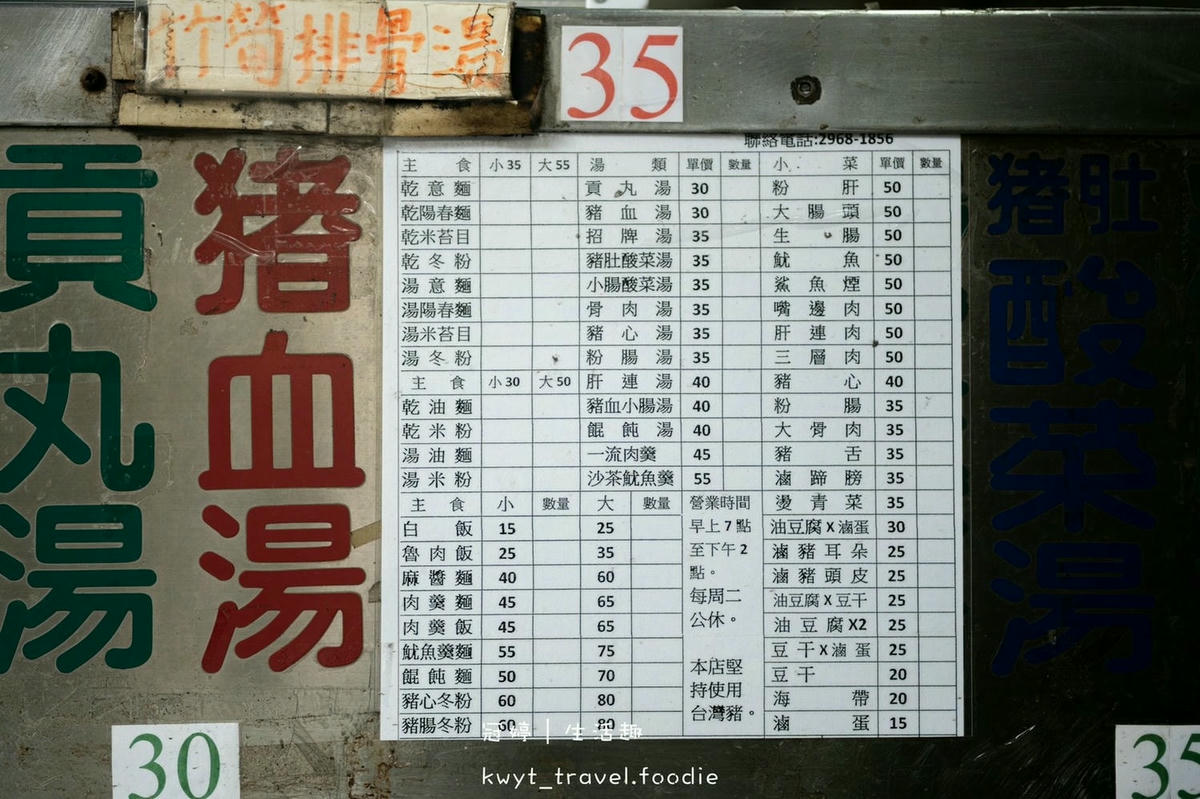 竹筍排骨湯
35
貢丸湯
30
豬血湯
豬肚酸菜湯
35
聯絡電話:2968-1856
主 食 小 35 大 55 湯 類 單價 數量 小 菜 單價 數量
乾意麵 貢丸湯 30 粉肝 50
乾陽春麵 豬血湯 30 大腸頭 50
乾米苔目 招牌湯 35 生腸 50
乾冬粉 豬肚酸菜湯 35 魷魚 50
湯意麵 小腸酸菜湯 35 鯊魚煙 50
湯陽春麵 骨肉湯 35 嘴邊肉 50
湯米苔目 豬心湯 35 肝連肉 50
湯冬粉 粉腸湯 35 三層肉 50
主 食 小 30 大 50 肝連湯 40 豬心 40
乾油麵 豬血小腸湯 40 粉腸 35
乾米粉 餛飩湯 40 大骨肉 35
湯油麵 一流肉羹 45 豬舌 35
湯米粉 沙茶魷魚羹 55 滷蹄膀 35
主 食 小 數量 大 數量 營業時間 燙青菜 35
白飯 15 25 早上 7 點 油豆腐 X 滷蛋 30
魯肉飯 25 35 至下午 2 滷豬耳朵 25
麻醬麵 40 60 點。 滷豬頭皮 25
肉羹麵 45 65 每周二 油豆腐 X 豆干 25
肉羹飯 45 65 公休。 油豆腐 X2 25
魷魚羹麵 55 75 豆干 X 滷蛋 25
餛飩麵 50 70 本店堅 豆干 20
豬心冬粉 60 80 持使用 海帶 20
豬腸冬粉 60 80 台灣豬。 滷蛋 15
冠婷 | 生活趣
kwyt_travel.foodie